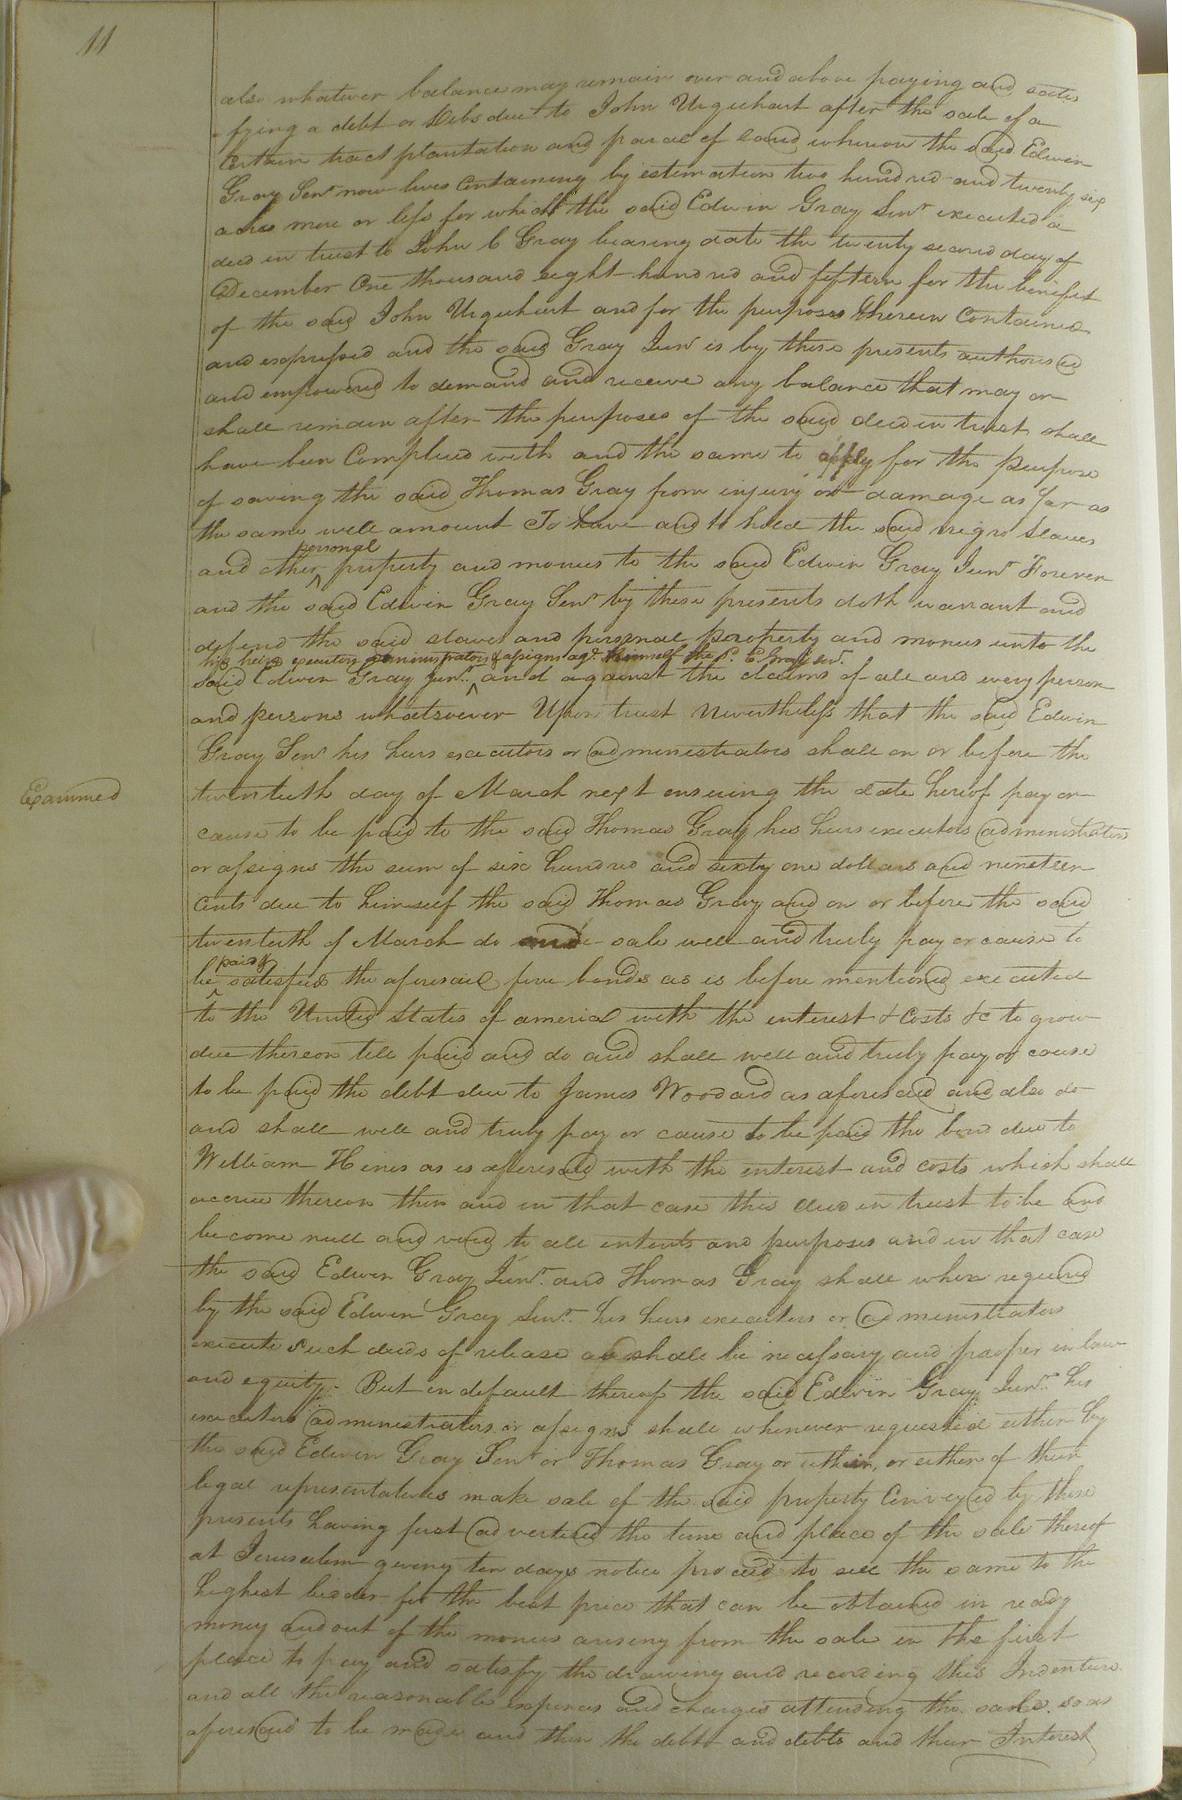 11
also whatever balance may remain over and above paying and satis
fying a debt or Debs due to John Urquhart after the sale of a
Certain tract plantation and parcel of land whereon the said Edwin
Gray Senr now lives Containing by estimation two hundred and twenty six
acres more or less for which the said Edwin Gray Senr executed a
deed in trust to John C Gray bearing date the twenty second day of
December One thousand eight hundred and fifteen for the benefit
of the said John Urquhart and for the purposes therein Contained
and expressed and the said Gray Junr is by these presents authorised
and empowered to demand and receive any balance that may or
shall remain after the purposes of the said deed in trust shall
have been Complied with and the same to apply for the purpose
of saving the said Thomas Gray from injury or damage as far as
the same will amount To have and to hold the said negro slaves
personal
and other ‸ property and monies to the said Edwin Gray Junr Forever
and the said Edwin Gray Senr by these presents doth warrant and
defend the said slaves and personal property and monies unto the
his heirs executors administrators & assigns agt. himself the sd. E Gray senr.
said Edwin Gray Junr. ‸ and against the claims of all and every person
and persons whatsoever Upon trust Nevertheless that the said Edwin
Gray Senr his heirs executors or administrators shall on or before the
Examined
twentieth day of March next ensuing the date hereof pay or
cause to be paid to the said Thomas Gray his heirs executors administrators
or assigns the sum of six hundred and sixty one dollars and nineteen
cents due to himself the said Thomas Gray and on or before the said
twentieth of March do and sale well and truly pay or cause to
paid &
be ‸ satisfied the aforesaid five bonds as is before mentioned executed
to the United States of america with the interest & Costs &c to grow
due thereon till paid and do and shall well and truly pay or cause
to be paid the debt due to James Woodard as aforesaid and also do
and shall well and truly pay or cause to be paid the bond due to
William Hines as is aforesaid with the interest and costs which shall
accrue thereon then and in that case this deed in trust to be and
become null and void to all intents and purposes and in that case
the said Edwin Gray Junr. and Thomas Gray shall when required
by the said Edwin Gray Senr. his heirs executors or administrators
execute such deeds of release as shall be necessary and proper in law
and equity. But in default thereof the said Edwin Gray Junr. his
executors administrators or assigns shall whenever requested either by
the said Edwin Gray Senr or Thomas Gray or either, or either of their
legal representatives make sale of the said property Conveyed by these
presents having first advertised the time and place of the sale thereof
at Jerusalem giving ten days notice proceed to sell the same to the
highest bidder for the best price that can be obtained in ready
money and out of the monies arising from the sale in the first
place to pay and satisfy the drawing and recording this Indenture
and all the reasonable expences and charges attending the sale. so as
aforesaid to be made and then the debt and debts and their Interest